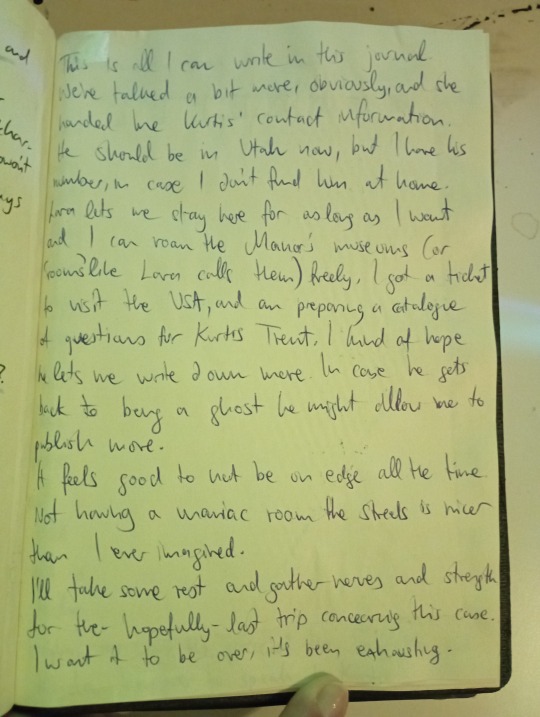 and
This is all I can write in this journal.
We've talked a bit more, obviously, and she
handed me Kurtis' contact information.
He should be in Utah now, but I have his
number, in case I don't find him at home.
Lara lets me stay here for as long as I want
and I can roam the Manor's museums (or
"rooms" like Lara calls them) freely. I got a ticket
to visit the USA, and am preparing a catalogue
of questions for Kurtis Trent. I kind of hope
he lets me write down more. In case he gets
back to being a ghost he might allow me to
publish more.
It feels good to not be on edge all the time.
Not having a maniac room the streets is nicer
than I ever imagined.
I'll take some rest and gather nerves and strength
for the - hopefully - last trip concerning this case.
I want it to be over, it's been exhausting.